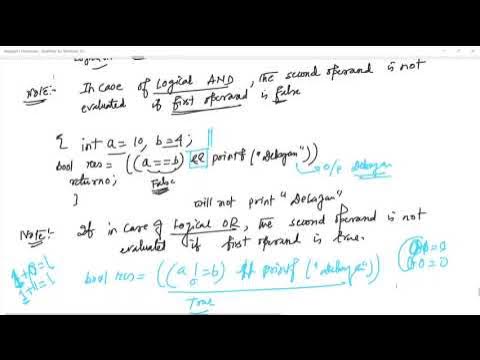 Note:- In case of Logical AND, the second operand is not
evaluated if first operand is false
{ int a=10, b=4;
bool res= ((a==b) && printf("Debayan"))
return 0;
False
o/p Debayan
}
will not print "Debayan"
Note:- If in case of Logical OR, the second operand is not
evaluated if first operand is true.
bool res= ((a!=b) || printf("Debayan"))
True
1+0=1
1+1=1